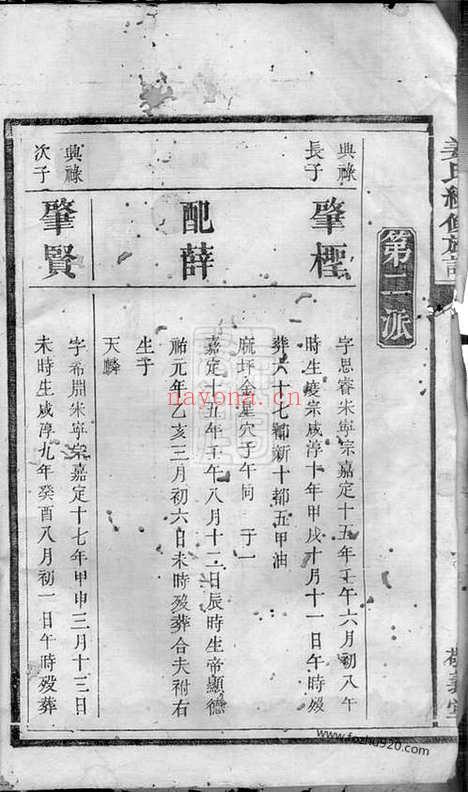 姜氏續修族譜
第二派
典祿
長子
肇樫
字思睿宋寧宗嘉定十五年壬午六月初八午
時生度宗咸淳十年甲戌十月十一日午時殁
葬六十七都新十都五甲油
麻坪金星穴子午向 子一
配薛
嘉定十五年壬午八月十二日辰時生帝顯德
祐元年乙亥三月初六日未時殁葬合夫祔右
生子
天麟
典祿
次子
肇賢
字希淵宋寧宗嘉定十七年甲申三月十三日
未時生咸淳九年癸酉八月初一日午時殁葬
義堂
nayona.cn
www.fozhu920.com